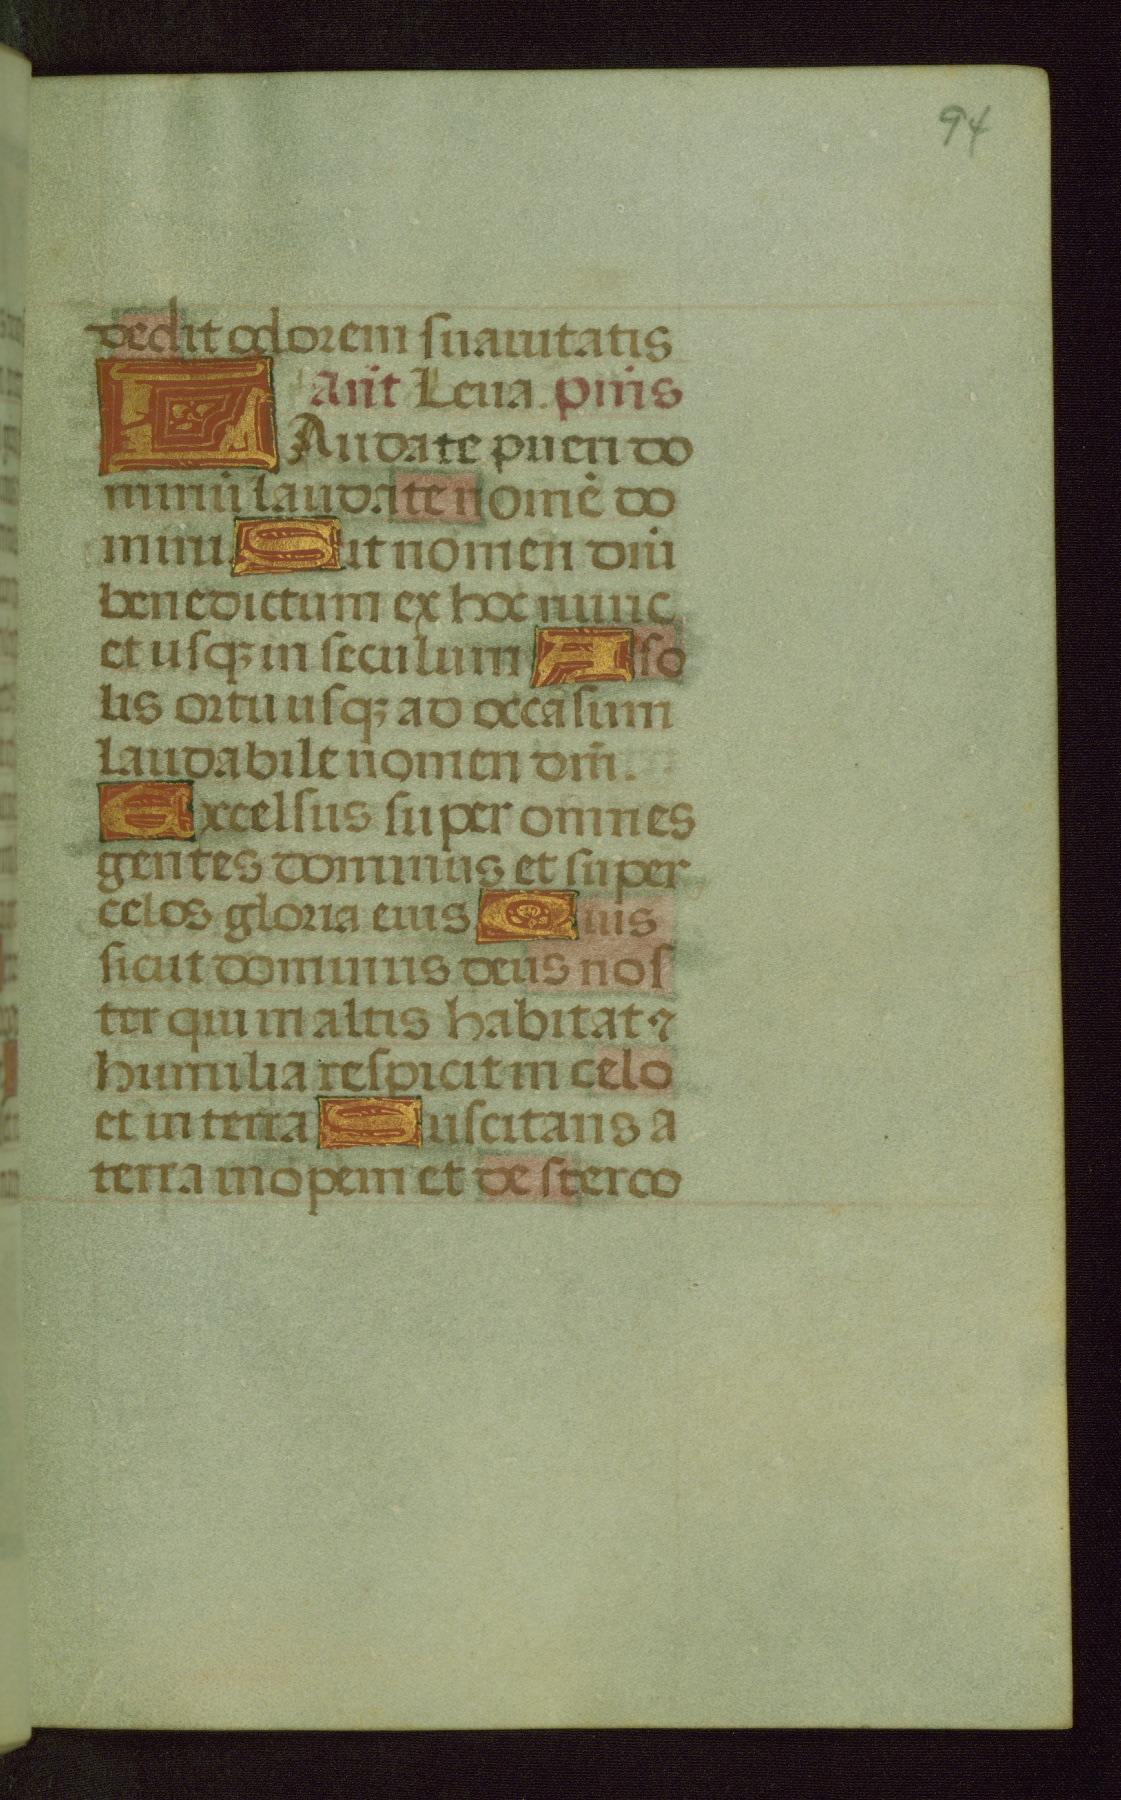 94
dedit odorem suavitatis
Ant Leva. pm̄s
LAudate pueri do
minū laudate nomē do
mini Sit nomen dn̄i
benedictum ex hoc nunc
et usqꝫ in seculum A so
lis ortu usqꝫ ad occasum
laudabile nomen dn̄i.
Excelsus super omnes
gentes dominus et super
celos gloria eius Quis
sicut dominus deus nos
ter qui in altis habitat ⁊
humilia respicit in celo
et in terra Suscitans a
terra inopem et de sterco